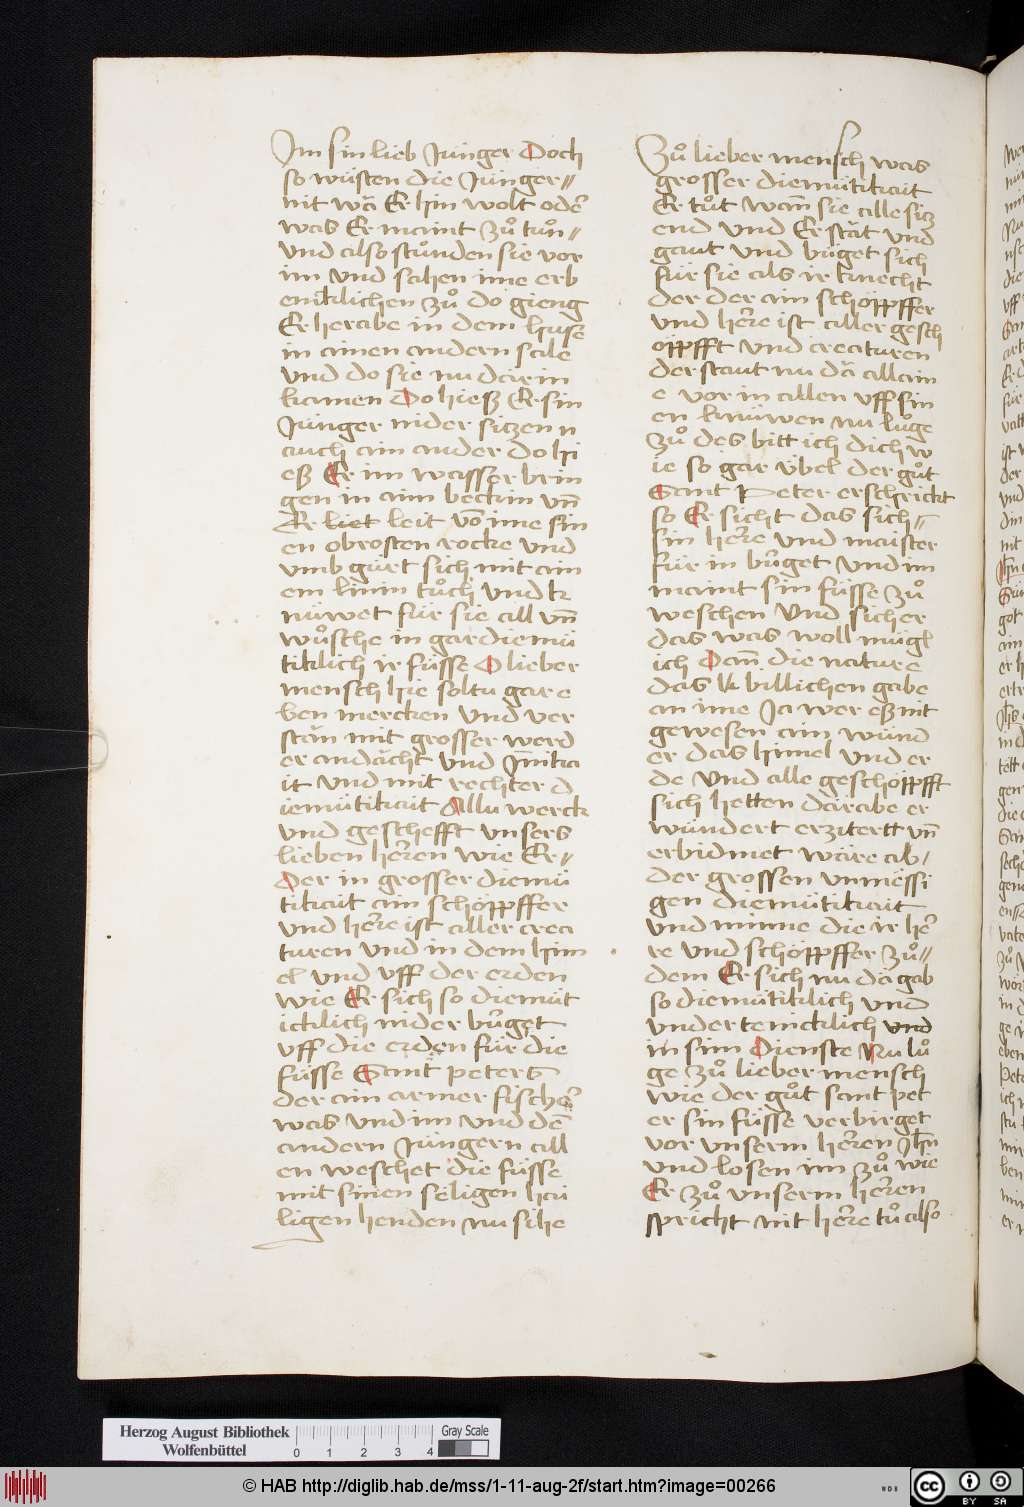 Im sin lieb Jünger Doch
so wüsten die Jünger=
nit wā Er hin wolt oder
was Er maint zuͦ tuͦn=
und also stuͦnden sie vor
im und sahen ime erb
ermklichen zuͦ do gieng
Er herabe in dem huse
in ainen andern sale
und do sie nu darin
kamen Do hiesz Er sin
Jünger nider sitzen n
auch ain ander do hi
esz Er im wasser brin
gen in aim beckin vn̄
Er leit vō ime sin
en obrosten rocke und
umb gürt sich mit aim
em linin tuͦch und k
nüwet für sie all vn̄
wuͦsche in gar diemü
tiklich ir füsse O lieber
mensch hie soltu gar e
ben mercken und ver
stān mit grosser werd
er andächt und Jn̄ika
it und mit rechter d
iemütikait Allu werck
und geschefft unsers
lieben herren wie Er=
Der in grosser diemü
tikait ain schöppffer
und herre ist aller crea
turen und in dem him
el und uff der erden
wie Er sich so diemüt
icklich nider büget
uff die erden für die
füsse Sant peters
der ain armer fischer
was und im und den
andern Jüngern all
en weschet die füsse
mit sinen seligen hai
ligen henden nu sihe
Zuͦ lieber mensch was
grosser diemütikait
Er tuͦt wañ sie alle sitz
end und Er stät und
gaut und büget sich
für sie als ir knecht
der der ain schöppffer
und herre ist aller gesch
öppfft und creaturen
der staut nu dā allain
e vor in allen uff sin
en knüwen nu luͦge
zuͦ des bitt ich dich w
ie so gar übel der guͦt
Sant Peter erschrickt
so Er sicht das sich=
sin herre und maister
für in büget und im
maint sin füsse zuͦ
weschen Und sicher
das was woll mügl
ich Dañ die nature
das billichen gabe
an ime Ja wer esz nit
gewesen ain wünd
er das himel und er
de und alle geschöppfft
sich hetten darabe er
wündert erzitertt vn̄
erbidmet wäre ab/
der grossen unmässi
gen diemütikait
und minne die ir her
re und schöppffer zuͦ=
dem Er sich nu da gab
so diemütiklich und
undertenicklich und
in sim Dienste Nu luͦ
ge zuͦ lieber mensch
wie der guͦt sant pet
er sin füsse verbirget
vor unserm herren Jhn
und losen im zuͦ wie
Er zuͦ unserm herren
spricht nit herre tuͦ also
Herzog August Bibliothek
Wolfenbüttel
0 1 2 3 4
Gray Scale
© HAB http://diglib.hab.de/mss/1-11-aug-2f/start.htm?image=00266
WDB
cc BY SA